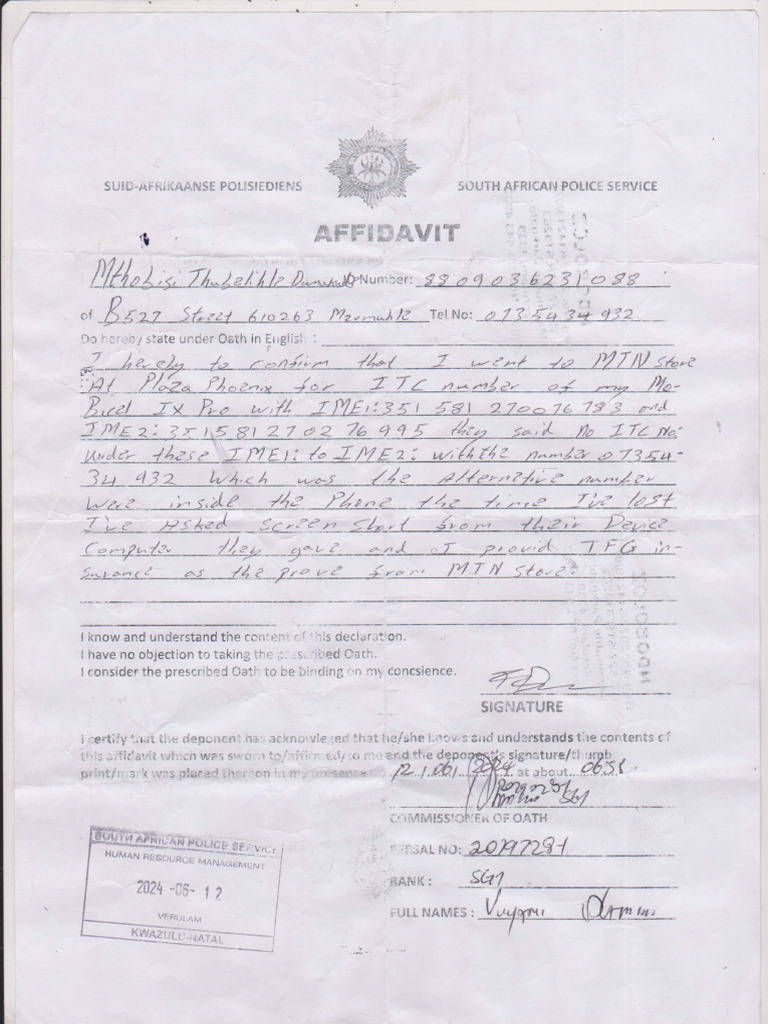 SUID-AFRIKAANSE POLISIEDIENS
SOUTH AFRICAN POLICE SERVICE
AFFIDAVIT
Mthobisi Thubelihle ID Number: 8809036231088
of B527 Street 610263 Mzomuhle Tel No: 0735434932
Do hereby state under Oath in English :
I hereby to confirm that I went to MTN Store
At Plaza Phoenix for ITC number of my Mo-
Bicel IX Pro with IME1:351 581 270076 783 and
IME2: 351581270276995 they said no ITC No:
under these IME1: to IME2: with the number 07354-
34 932 which was the Alternative number
were inside the Phone the time I've lost
I've Asked Screen Short from their Device
Computer they gave and I provid TFG in-
surance as the prove from MTN Store.
I know and understand the content of this declaration.
I have no objection to taking the prescribed Oath.
I consider the prescribed Oath to be binding on my concsience.
SIGNATURE
I certify that the deponent has acknowledged that he/she knows and understands the contents of
this affidavit which was sworn to/affirmed to me and the deponent's signature/thumb
print/mark was placed thereon in my presence 12/06/2024 at about
COMMISSIONER OF OATH
PERSAL NO:
RANK : SGT
FULL NAMES :
SOUTH AFRICAN POLICE SERVICE
HUMAN RESOURCE MANAGEMENT
2024 -06- 12
VERULAM
KWAZULU-NATAL